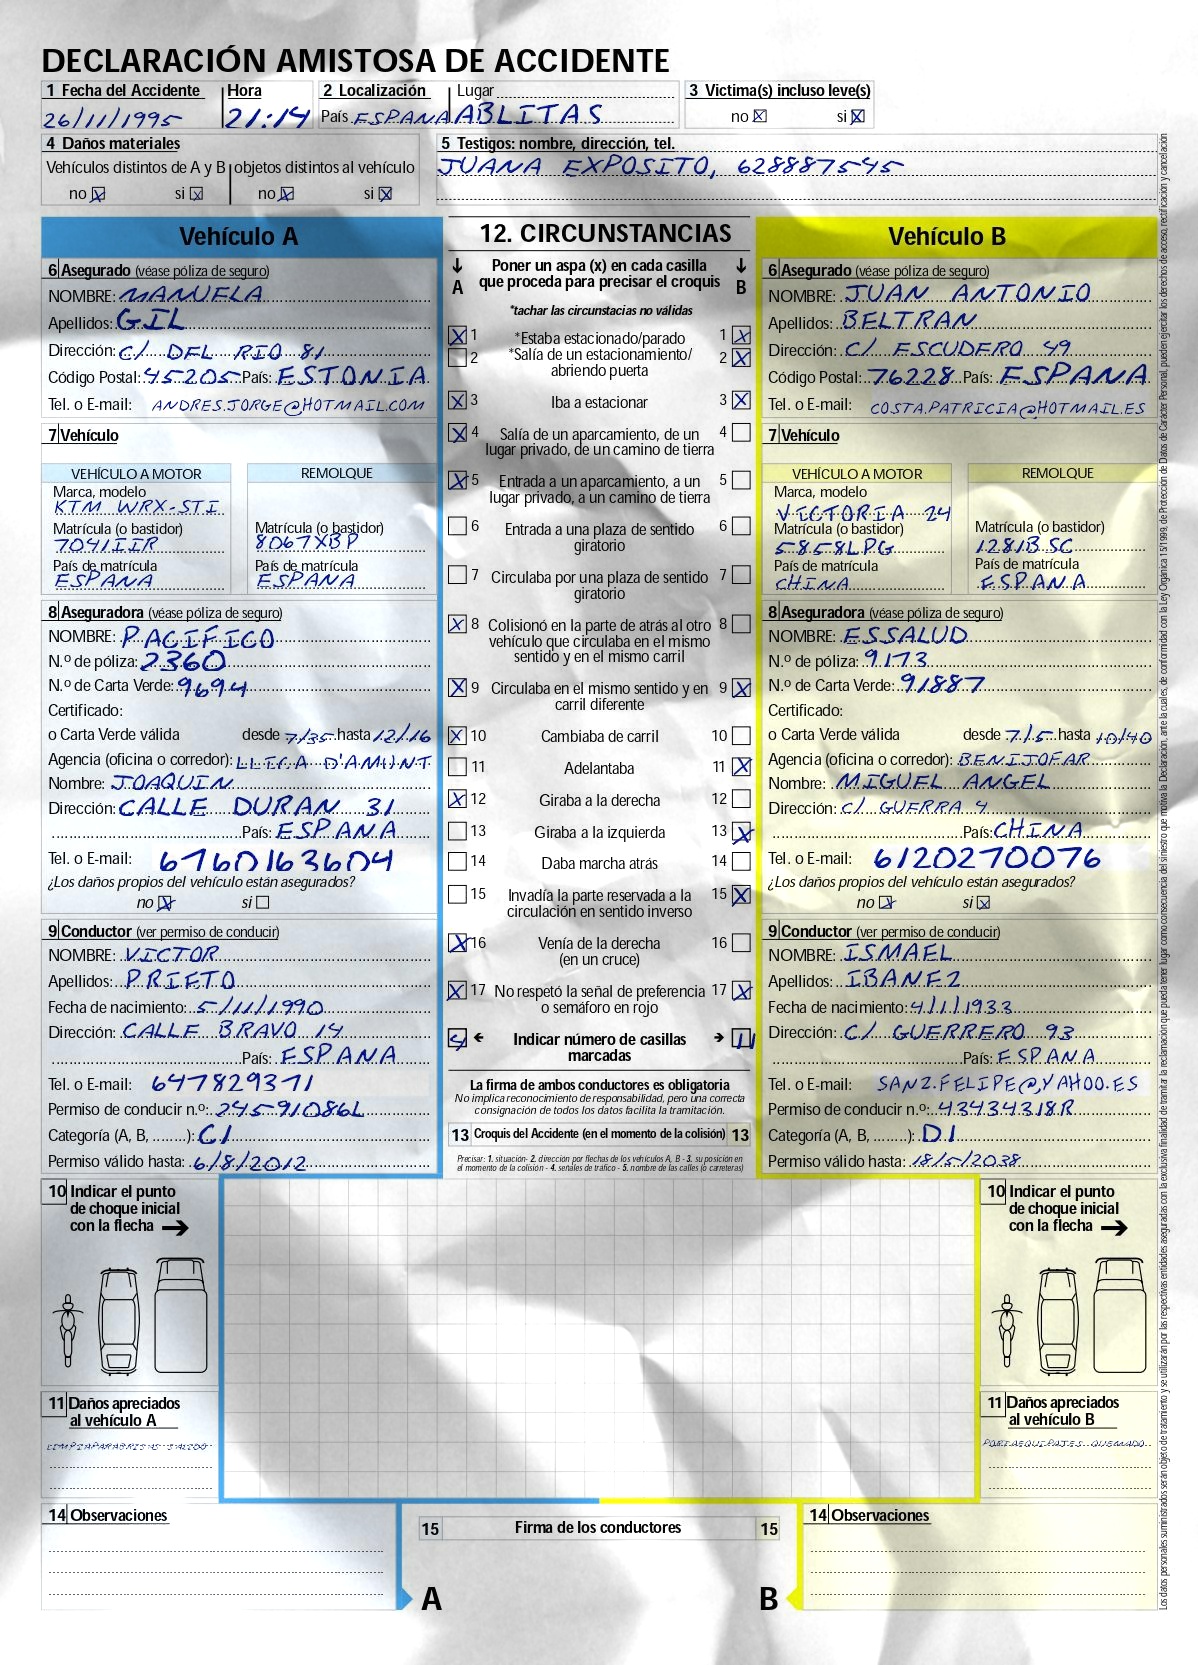 DECLARACIÓN AMISTOSA DE ACCIDENTE
1 Fecha del Accidente Hora 2 Localización Lugar 3 Victima(s) incluso leve(s)
26/11/1995 21:14 País ESPANA ABLITAS no si
4 Daños materiales 5 Testigos: nombre, dirección, tel.
Vehículos distintos de A y B objetos distintos al vehículo JUANA EXPOSITO, 628887545
no si no si
Vehículo A
6 Asegurado (véase póliza de seguro)
NOMBRE: MANUELA
Apellidos: GIL
Dirección: C/ DEL RIO 81
Código Postal: 45205 País: ESTONIA
Tel. o E-mail: ANDRES.JORGE@HOTMAIL.COM
7 Vehículo
VEHÍCULO A MOTOR REMOLQUE
Marca, modelo
KTM WRX-STI
Matrícula (o bastidor) Matrícula (o bastidor)
7041IIR 8067XBP
País de matrícula País de matrícula
ESPANA ESPANA
8 Aseguradora (véase póliza de seguro)
NOMBRE: PACIFICO
N.º de póliza: 2360
N.º de Carta Verde: 9694
Certificado:
o Carta Verde válida desde 7/35 hasta 12/16
Agencia (oficina o corredor): LLICA D'AMUNT
Nombre: JOAQUIN
Dirección: CALLE DURAN 31
País: ESPANA
Tel. o E-mail: 6760163604
¿Los daños propios del vehículo están asegurados?
no si
9 Conductor (ver permiso de conducir)
NOMBRE: VICTOR
Apellidos: PRIETO
Fecha de nacimiento: 5/11/1990
Dirección: CALLE BRAVO 14
País: ESPANA
Tel. o E-mail: 647829371
Permiso de conducir n.º: 24591086L
Categoría (A, B, ........): C1
Permiso válido hasta: 6/8/2012
12. CIRCUNSTANCIAS
A Poner un aspa (x) en cada casilla que proceda para precisar el croquis B
*tachar las circunstacias no válidas
1 *Estaba estacionado/parado 1
2 *Salía de un estacionamiento/ 2
abriendo puerta
3 Iba a estacionar 3
4 Salía de un aparcamiento, de un 4
lugar privado, de un camino de tierra
5 Entrada a un aparcamiento, a un 5
lugar privado, a un camino de tierra
6 Entrada a una plaza de sentido 6
giratorio
7 Circulaba por una plaza de sentido 7
giratorio
8 Colisionó en la parte de atrás al otro 8
vehículo que circulaba en el mismo
sentido y en el mismo carril
9 Circulaba en el mismo sentido y en 9
carril diferente
10 Cambiaba de carril 10
11 Adelantaba 11
12 Giraba a la derecha 12
13 Giraba a la izquierda 13
14 Daba marcha atrás 14
15 Invadía la parte reservada a la 15
circulación en sentido inverso
16 Venía de la derecha 16
(en un cruce)
17 No respetó la señal de preferencia 17
o semáforo en rojo
Indicar número de casillas 11
marcadas
La firma de ambos conductores es obligatoria
No implica reconocimiento de responsabilidad, pero una correcta
consignación de todos los datos facilita la tramitación.
13 Croquis del Accidente (en el momento de la colisión) 13
Precisar: 1. situación- 2. dirección por flechas de los vehículos A, B - 3. su posición en
el momento de la colisión - 4. señales de tráfico - 5. nombre de las calles (o carreteras)
Vehículo B
6 Asegurado (véase póliza de seguro)
NOMBRE: JUAN ANTONIO
Apellidos: BELTRAN
Dirección: C/ ESCUDERO 49
Código Postal: 76228 País: ESPANA
Tel. o E-mail: COSTA.PATRICIA@HOTMAIL.ES
7 Vehículo
VEHÍCULO A MOTOR REMOLQUE
Marca, modelo
VICTORIA 24
Matrícula (o bastidor) Matrícula (o bastidor)
5858LPG 1281BSC
País de matrícula País de matrícula
CHINA ESPANA
8 Aseguradora (véase póliza de seguro)
NOMBRE: ESSALUD
N.º de póliza: 9173
N.º de Carta Verde: 91887
Certificado:
o Carta Verde válida desde 7/5 hasta 10/40
Agencia (oficina o corredor): BENIJOFAR
Nombre: MIGUEL ANGEL
Dirección: C/ GUERRA 4
País: CHINA
Tel. o E-mail: 6120270076
¿Los daños propios del vehículo están asegurados?
no si
9 Conductor (ver permiso de conducir)
NOMBRE: ISMAEL
Apellidos: IBANEZ
Fecha de nacimiento: 4/1/1933
Dirección: C/ GUERRERO 93
País: ESPANA
Tel. o E-mail: SANZ.FELIPE@YAHOO.ES
Permiso de conducir n.º: 43434318R
Categoría (A, B, ........): D1
Permiso válido hasta: 18/5/2038
10 Indicar el punto
de choque inicial
con la flecha
11 Daños apreciados
al vehículo A
LIMPIAPARABRISAS SALIDO
10 Indicar el punto
de choque inicial
con la flecha
11 Daños apreciados
al vehículo B
PORTAEQUIPAJES QUEMADO
14 Observaciones
15 Firma de los conductores 15
A B
14 Observaciones